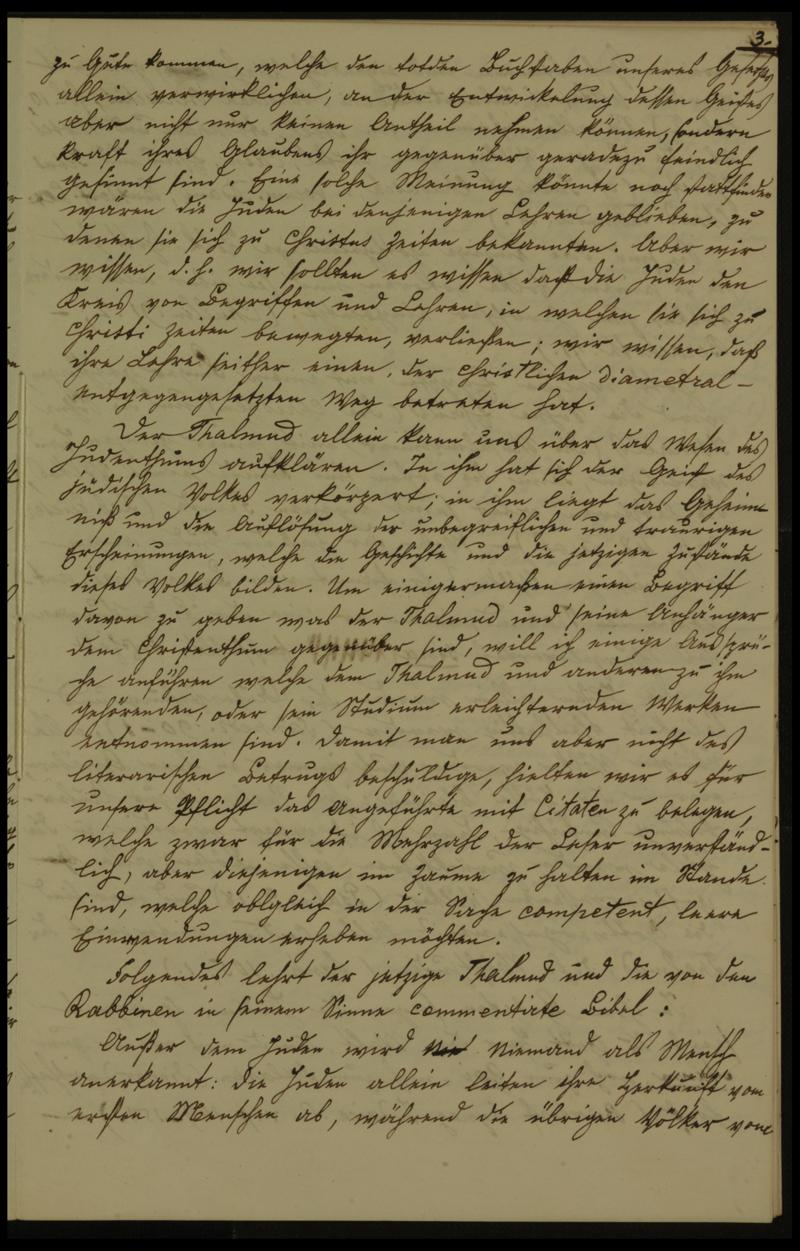 3.
zu Gute kommen, welche den todten Buchstaben unseres Gesetzes
allein verwirklichen, an der Entwickelung dessen Geistes
aber nicht nur keinen Antheil nehmen können, sondern
kraft ihres Glaubens ihr gegenüber geradezu feindlich
gesinnt sind. Eine solche Meinung könnte noch stattfinden
wären die Juden bei denjenigen Lehren geblieben, zu
denen sie sich zu Christus Zeiten bekannten. Aber wir
wissen, d. h. wir sollten es wissen daß die Juden den
Kreis von Begriffen und Lehren, in welchen sie sich zu
Christi Zeiten bewegten, verließen; wir wissen, daß
ihre Lehre seither einen, der christlichen diametral-
entgegengesetzten Weg betreten hat.
Der Thalmud allein kann uns über das Wesen des
Judenthums aufklären. In ihm hat sich der Geist des
jüdischen Volkes verkörpert; in ihm liegt das Geheim-
niß und die Auflösung der unbegreiflichen und traurigen
Erscheinungen, welche die Geschichte und die jetzigen Zustände
dieses Volkes bilden. Um einigermaßen einen Begriff
davon zu geben was der Thalmud und seine Anhänger
dem Christenthum gegenüber sind, will ich einige Aussprü-
che anführen welche dem Thalmud und anderen zu ihm
gehörenden, oder sein Studium erleichternden Werken
entnommen sind. Damit man uns aber nicht des
literarischen Betrugs beschuldige, hielten wir es für
unsere Pflicht das Angeführte mit Citaten zu belegen,
welche zwar für die Mehrzahl der Leser unverständ-
lich, aber diejenigen im Zaume zu halten im Stande
sind, welche obgleich in der Sache competent, leere
Einwendungen erheben möchten.
Folgendes lehrt der jetzige Thalmud und die von den
Rabbinen in seinem Sinne commentirte Bibel:
Außer dem Juden wird Niemand als Mensch
anerkannt: die Juden allein leiten ihre Herkunft vom
ersten Menschen ab, während die übrigen Völker vom